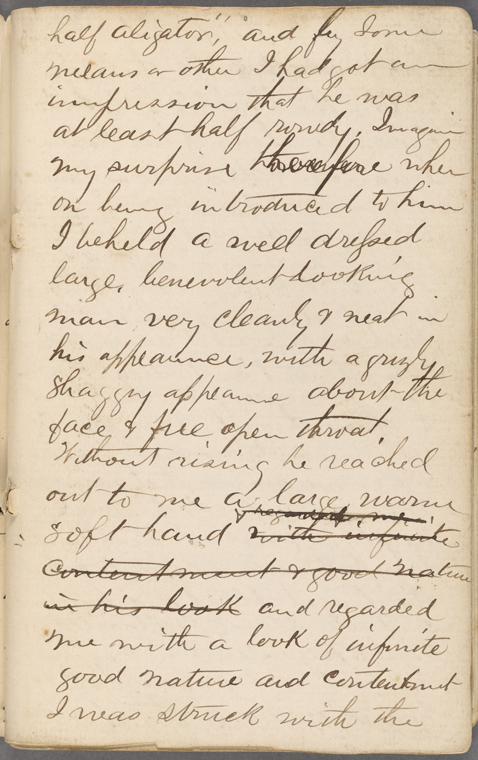 half aligator", and by some
means or other I had got an
impression that he was
at least half rowdy. Imagin
my surprise therefore when
on being introduced to him
I beheld a well dressed
large, benevolent looking
man very cleanly & neat in
his appearance, with a grizly
shaggy appearance about the
face & free open throat.
Without rising he reached
out to me a large warm
& regarded me
soft hand with infinite
contentment & good nature
in his look and regarded
me with a look of infinite
good nature and contentment
I was struck with the